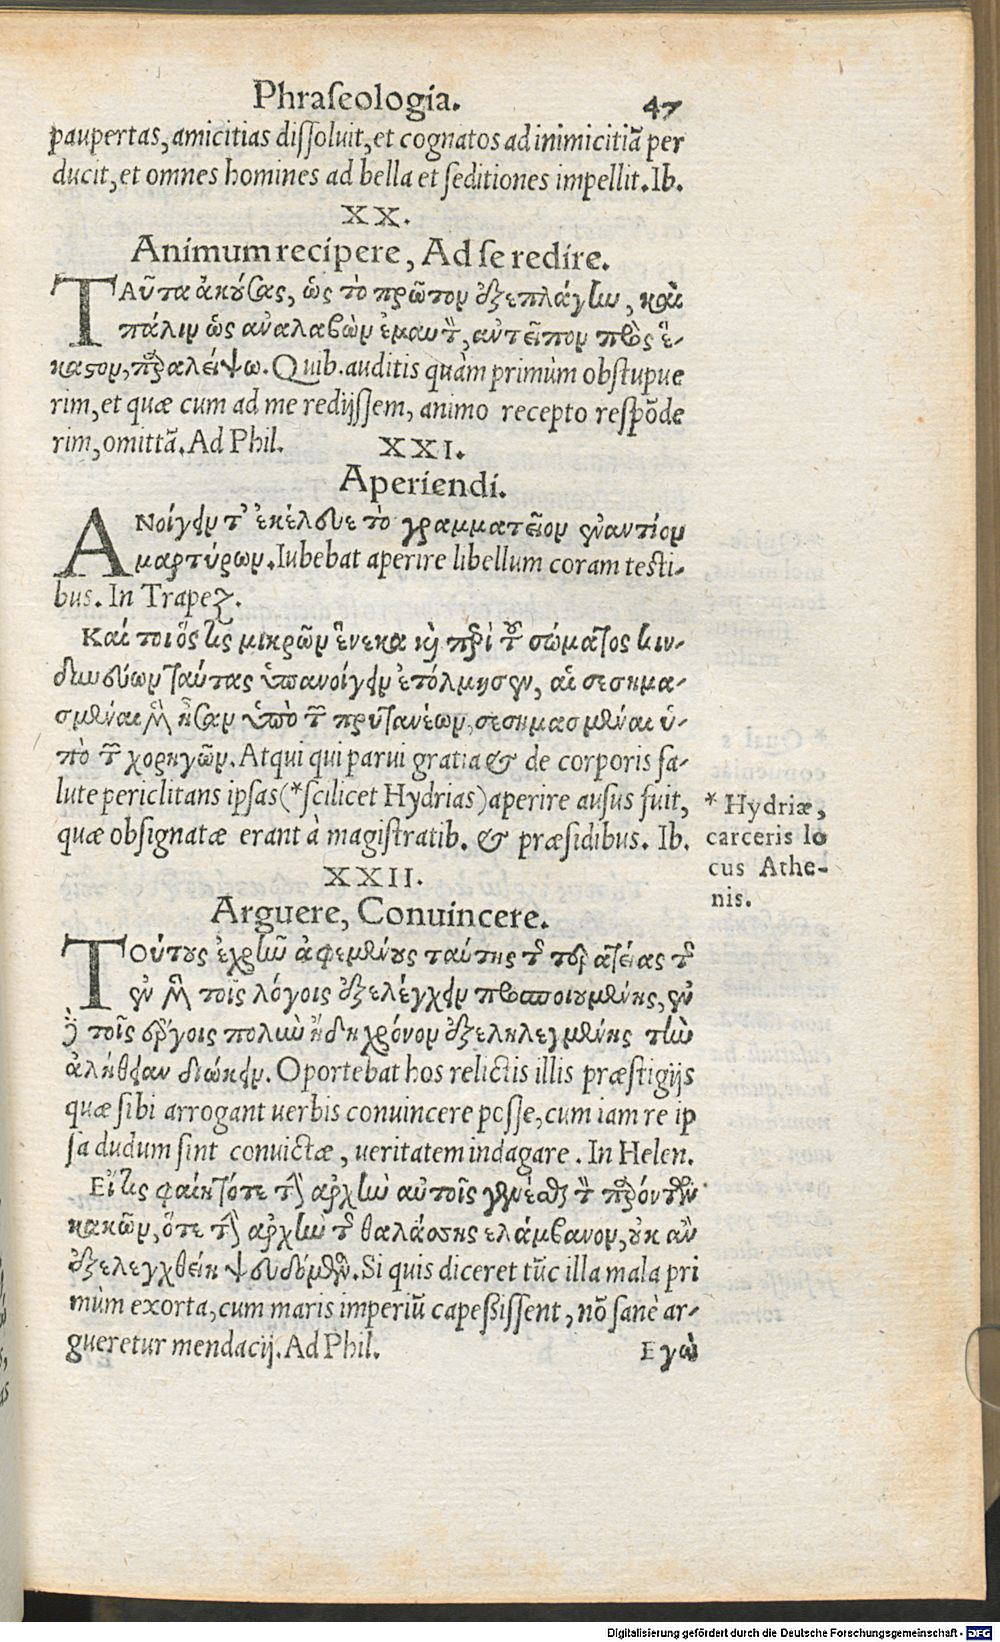 Phraſeologia. 47
paupertas, amicitias diſſoluit, et cognatos ad inimicitiã per
ducit, et omnes homines ad bella et ſeditiones impellit. Ib.
XX.
Animum recipere, Ad ſe redire.
ΤΑῦτα ἀκούσας, ὡς τὸ πρῶτον ἐξεπλάγην, καὶ
πάλιν ὡς ἀναλαβὼν ἐμαυτὸν, ἀντεῖπον πρὸς ἕ-
καστον, παραλείψω. Quib. auditis quàm primùm obſtupue
rim, et quæ cum ad me redijſſem, animo recepto reſpõde
rim, omittã. Ad Phil.
XXI.
Aperiendi.
ΑΝοίγειν τ' ἐκέλευε τὸ γραμματεῖον ἐναντίον
μαρτύρων. Iubebat aperire libellum coram teſti-
bus. In Trapez.
Καί τοι ὅς τις μικρῶν ἕνεκα καὶ περὶ τοῦ σώματος κιν-
δυνεύων ταύτας ὑπανοίγειν ἐτόλμησεν, αἳ σεσημα-
σμέναι μὲν ἦσαν ὑπὸ τῶν πρυτανέων, σεσημασμέναι ὑ-
πὸ τῶν χορηγῶν. Atqui qui parui gratia & de corporis ſa-
lute periclitans ipſas (*ſcilicet Hydrias) aperire auſus fuit,
quæ obſignatæ erant à magiſtratib. & præſidibus. Ib.
* Hydriæ,
carceris lo
cus Athe-
nis.
XXII.
Arguere, Conuincere.
ΤΟύτους ἐχρῆν ἀφεμένους ταύτης τῆς τερατείας τῆς
ἐν μὲν τοῖς λόγοις ἐξελέγχειν προσποιουμένης, ἐν
δὲ τοῖς ἔργοις πολὺν ἤδη χρόνον ἐξεληλεγμένης τὴν
ἀλήθειαν διώκειν. Oportebat hos relictis illis præſtigijs
quæ ſibi arrogant uerbis conuincere poſſe, cum iam re ip
ſa dudum ſint conuictæ, ueritatem indagare. In Helen.
Εἴ τις φαίη τότε τὴν ἀρχὴν αὐτοῖς γενέσθαι τῶν παρόντων
κακῶν, ὅτε τὴν ἀρχὴν τῆς θαλάσσης ἐλάμβανον, οὐκ ἂν
ἐξελεγχθείη ψευδόμενος. Si quis diceret tũc illa mala pri
mùm exorta, cum maris imperiũ capeßiſſent, nõ ſanè ar-
gueretur mendacij. Ad Phil. Ἐγὼ
Digitalisierung gefördert durch die Deutsche Forschungsgemeinschaft - DFG